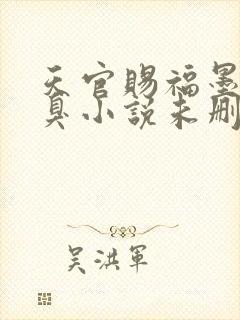 天官賜福墨
臭小說未刪
吴洪軍